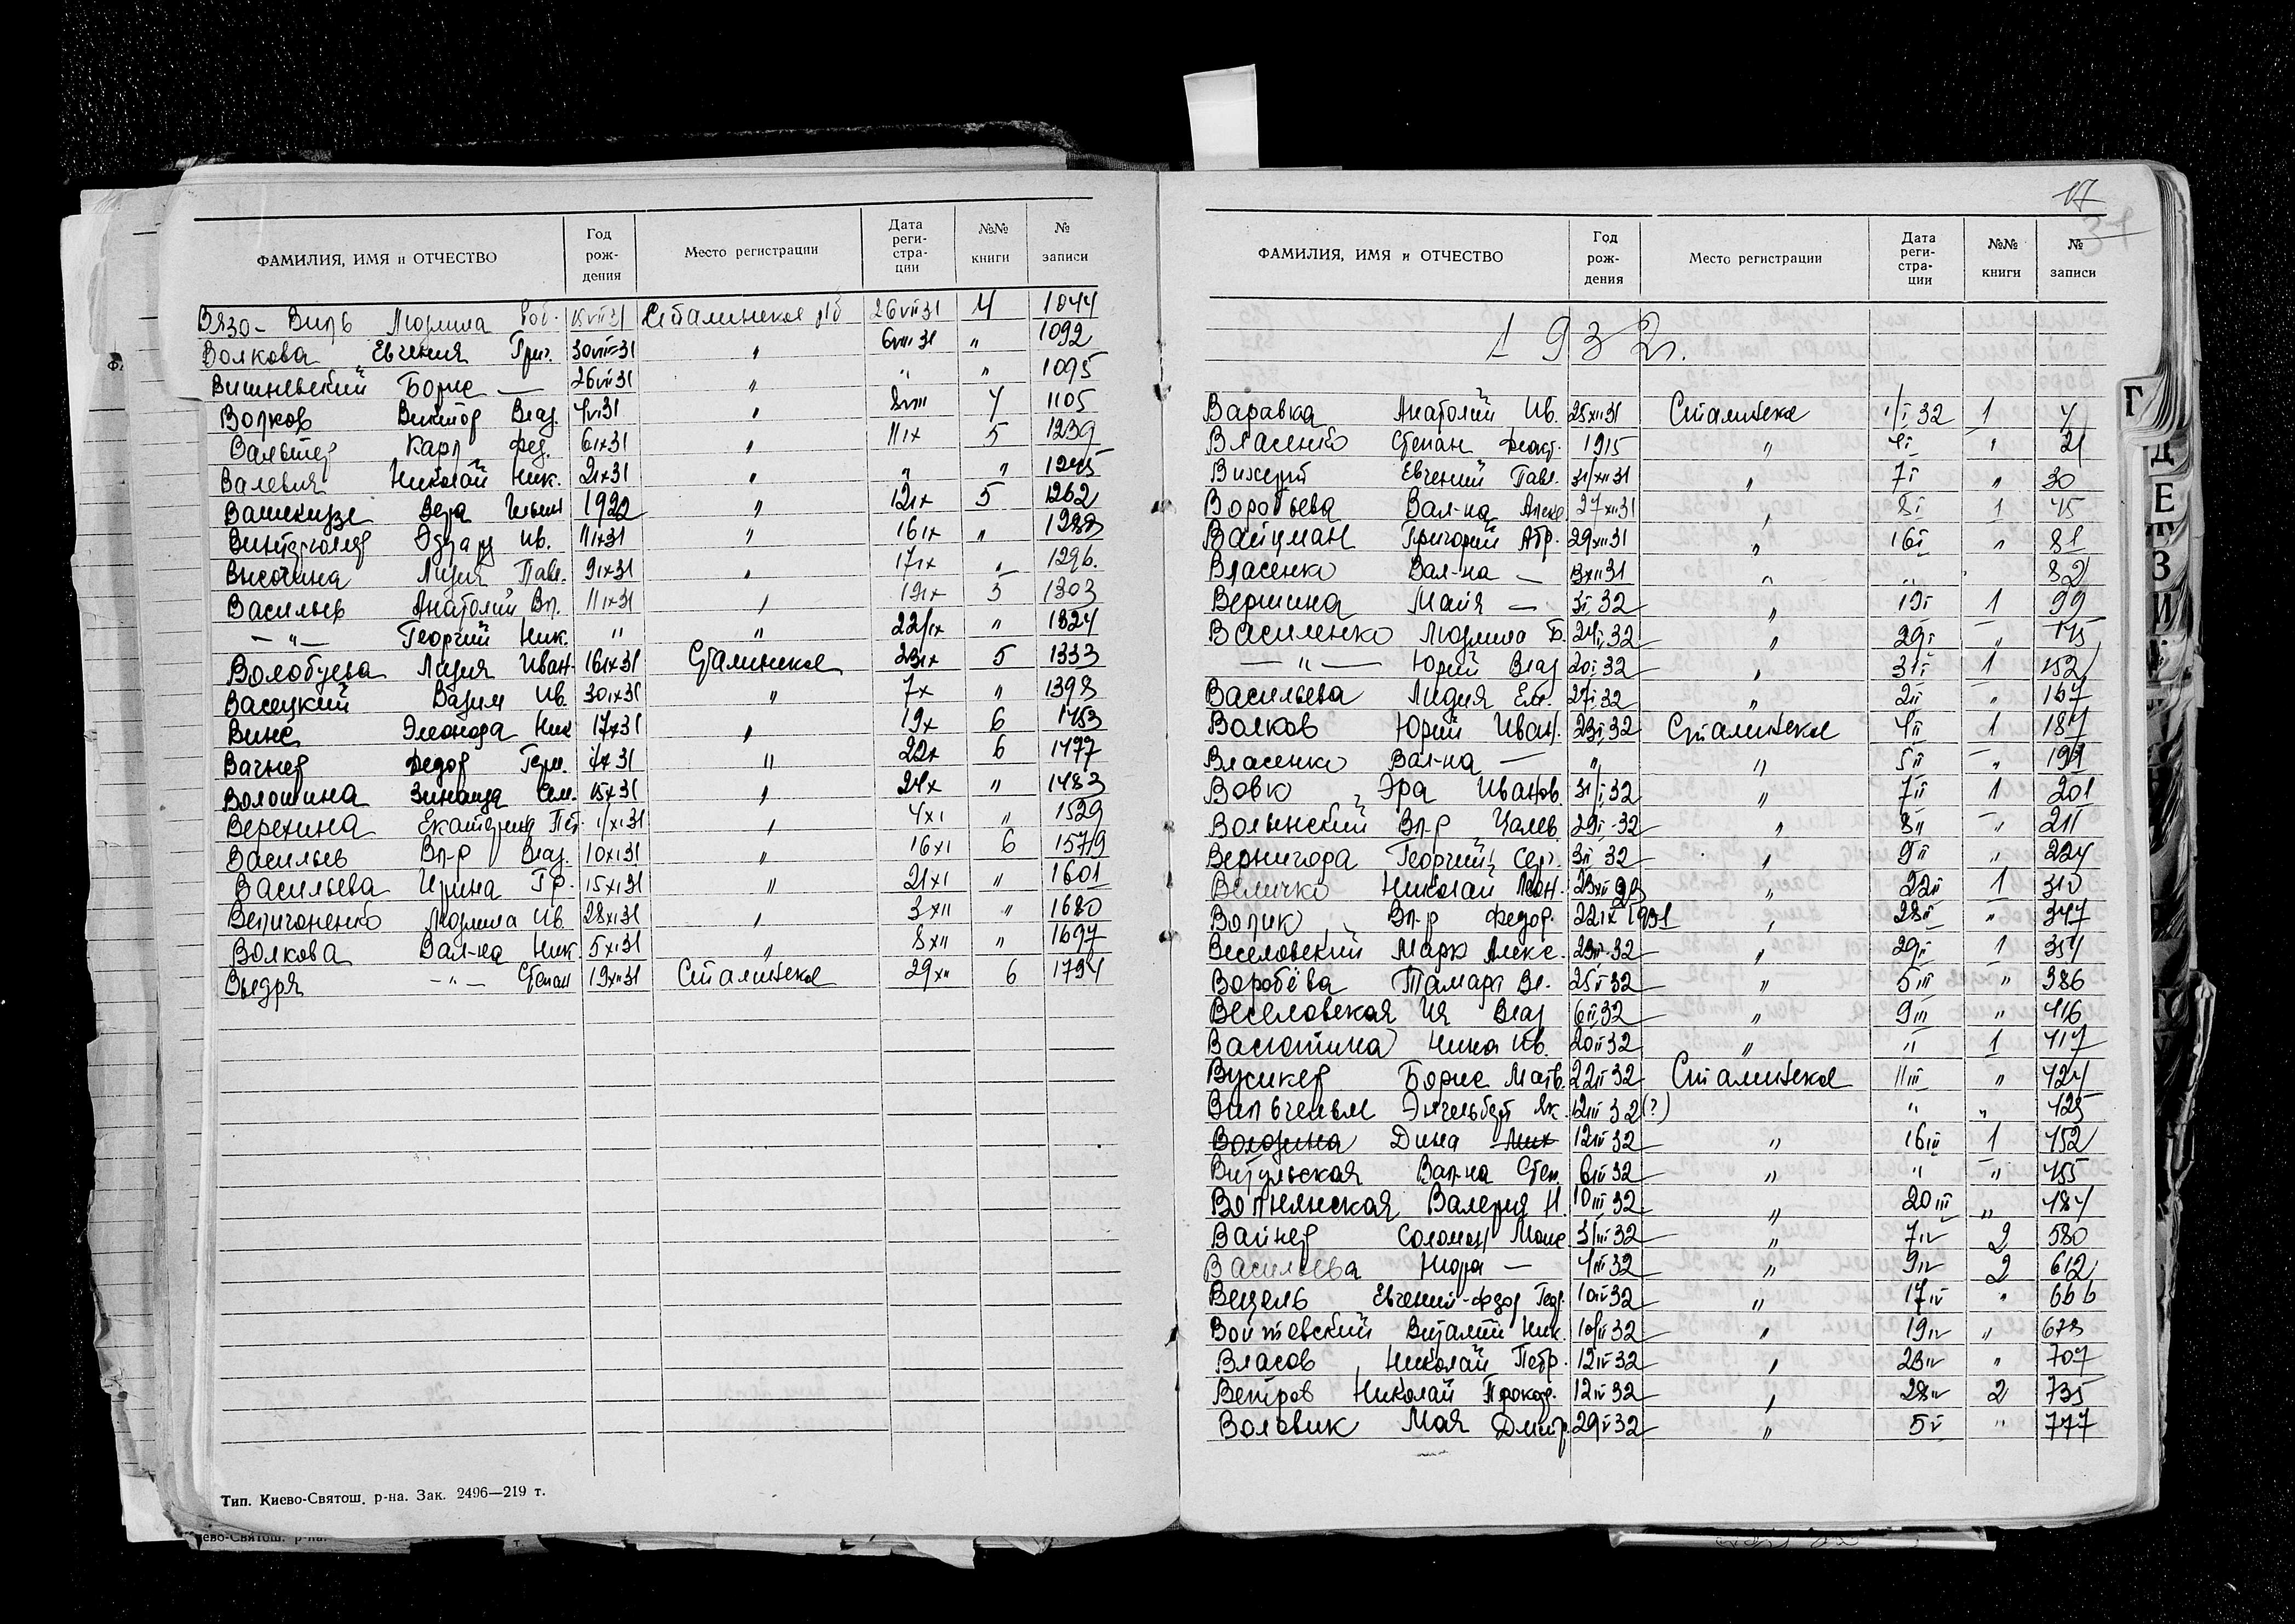 ФАМИЛИЯ, ИМЯ и ОТЧЕСТВО Год рож-дения Место регистрации Дата реги-стра-ции №№ книги № записи
Вязо- Виль Людмила Роб. 15VII31 Сталинское 26VII31 4 1044
Волкова Евгения Григ. 30VII31 " 6VIII31 " 1092
Вишневский Борис — 26VII31 " " " 1095
Волков Виктор Влад. 31 " 8VIII 4 1105
Вальтер Карл Фед. 6IX31 " 11IX 5 1239
Валевия Николай Ник. 2IX31 " " " 1245
Вера 1922 " 12IX 5 1262
Эдуард Ив. 11IX31 " 16IX " 1288
Высочина Лидия Павл. 9IX31 " 17IX " 1296.
Васильев Анатолий Вл. 11IX31 " 19IX 5 1303
— " — Георгий Ник. " " 22/IX " 1324
Волобуева Лидия Иван. 16IX31 Сталинское 23IX 5 1333
Васецкий Вадим Ив. 30IX31 " 7X " 1398
Винс Элеонора Ник 17X31 " 19X 6 1453
Вагнер Федор Герм. X31 " 22X 6 1477
Волошина Зинаида Сем. 15X31 " 24X " 1483
Верехина Екатерина Пет. 1/XI31 " 4XI " 1529
Васильев Вл-р Влад. 10XI31 " 16XI 6 1579
Васильева Ирина Гр. 15XI31 " 21XI " 1601
Людмила Ив. 28XI31 " 3XII " 1680
Волкова Вал-на Ник. 5XI31 " 8XII " 1697
Выдря — " — Степан 19XII31 Сталинское 29XII 6 1794
Тип. Киево-Святош. р-на. Зак. 2496—219 т.
17
37
ФАМИЛИЯ, ИМЯ и ОТЧЕСТВО Год рож-дения Место регистрации Дата реги-стра-ции №№ книги № записи
1932г.
Варавка Анатолий Ив. 25XII31 Сталинское 1/I 32 1 4
Власенко Степан Феокт. 1915 " 4I " 21
Евгений Павл. 31/XII31 " 7I " 30
Воробьева Вал-на Алекс. 27XII31 " 8I 1 45
Вайцман Григорий Абр. 29XII31 " 16I " 81
Власенко Вал-на — XII31 " " 82
Вершина Майя — 3I32 " 19I 1 99
Василенко Людмила Б. 24I32 " 29I "
— " — Юрий Влад 20I32 " 31I 1 152
Васильева Лидия Ем. 27I32 " 2II " 167
Волков Юрий Иван. 23I32 Сталинское 4II 1 187
Власенко Вал-на — " " 5II "
Вовк Эра Иванов. 31/I32 " 7II 1 201
Волынский Вл-р 29I-32 " 8II " 211
Вернигора Георгий Серг. 3II32 " 9II " 224
Величко Николай " 22II 1 310
Волик Вл-р Федор. 22IX1931 " 28II " 347
Веселовский Марк Алекс. 23II32 " 29II 1 354
Воробёва Тамара Вл. 25II32 " 5III " 386
Веселовская Ия Влад 6II32 " 9III " 416
Васютина Нина Ив. 20II32 " " 1 417
Вусикер Борис Матв. 22II32 Сталинское 11III " 424
Вильгельм Энгельберт Як. 12III32(?) " " 425
Володина Дина Мих 12III32 " 16III 1 452
Витульская Вал-на Степ 6III32 " " " 455
Волнянская Валерия Н. 10III32 " 20III " 484
Вайнер Соломон Моис 31/III32 " 7IV 2 580
Васильева Нюра — 32 " 9IV 2 612
Вецель Евгений-Федор Геор. 10IV32 " 17IV " 666
Войтовский Виталий Ник. 10/IV32 " 19IV " 678
Власов Николай Петр. 12IV32 " 23IV " 707
Ветров Николай Прокоф. 12IV32 " 28IV 2 735
Воловик Мая Дмитр. 29IV32 " 5V " 777
Г
Д
Е
Ж
З
И